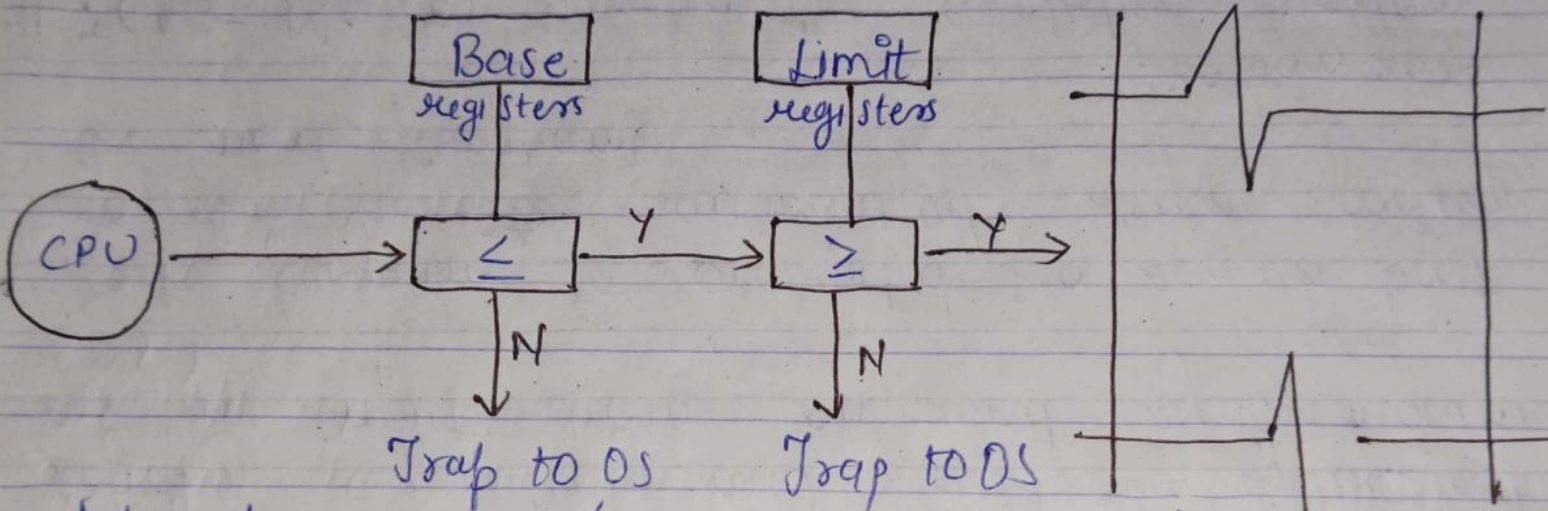 Base Limit
registers registers
CPU ≤ Y ≥ Y
N N
Trap to OS Trap to OS